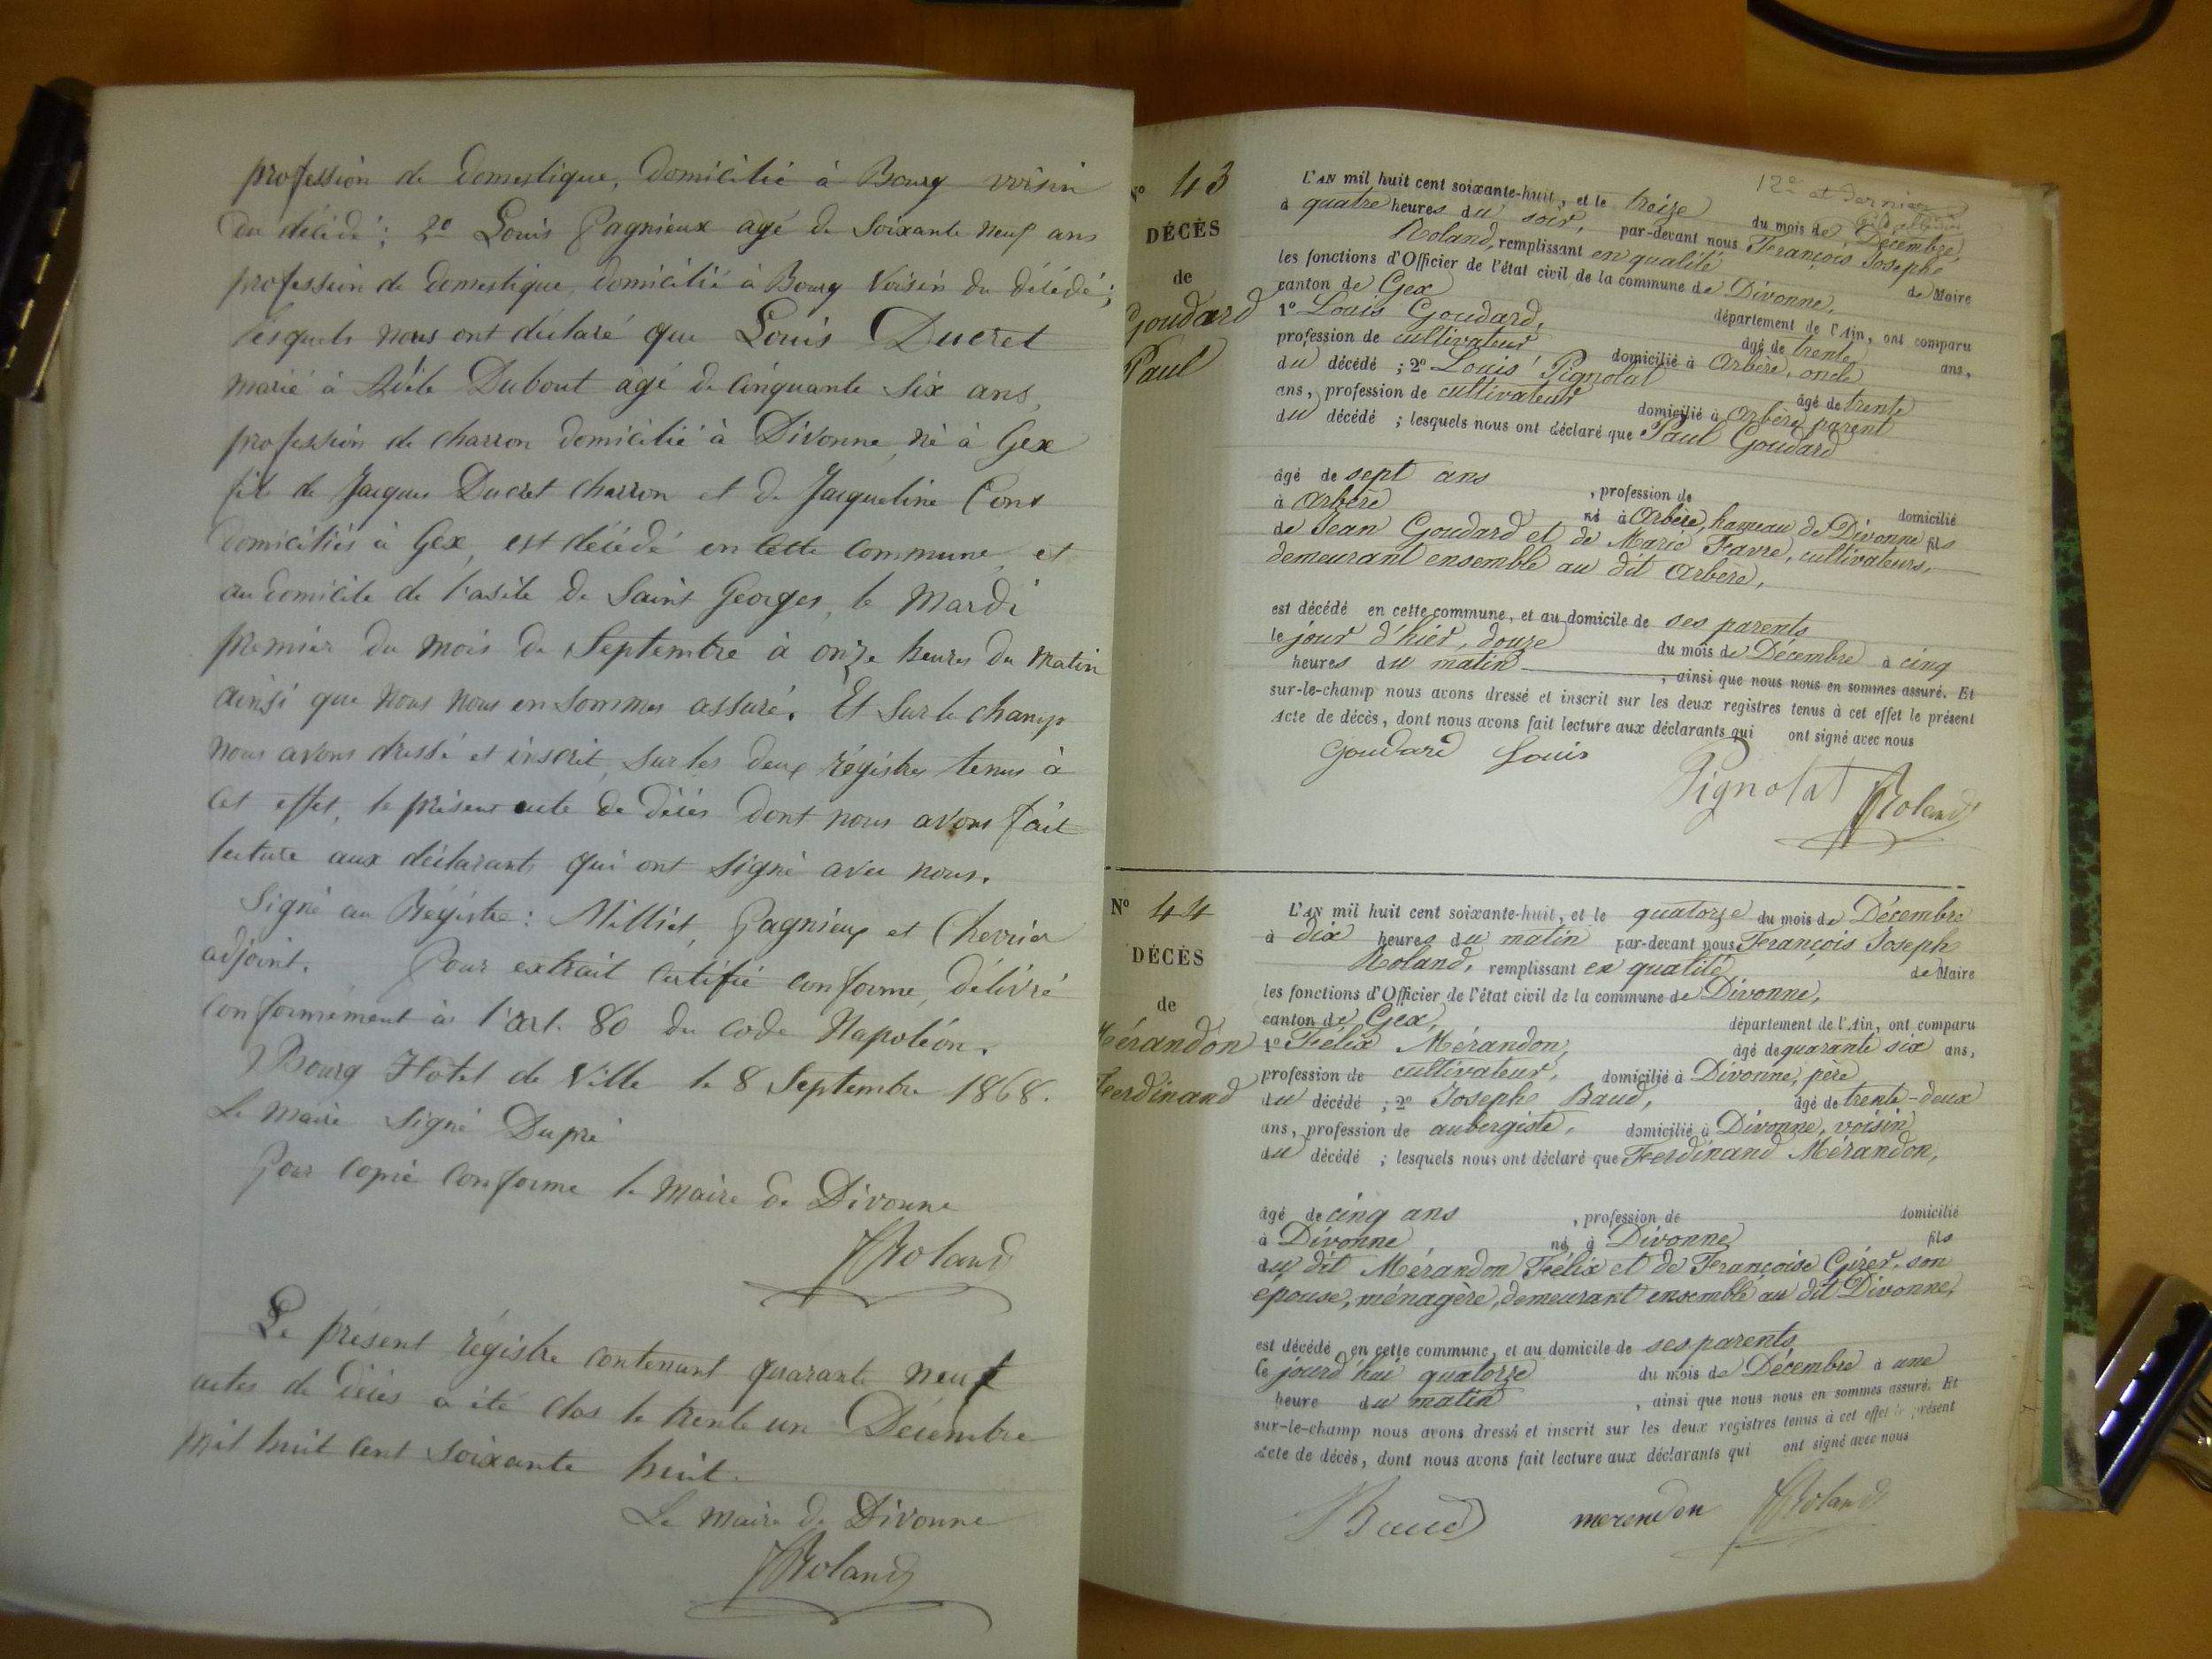 profession de domestique, domicilié à Bourg voisin
du décédé; 2º Louis Pagnieux agé de Soixante neuf ans
profession de domestique, domicilié à Bourg Voisin du décédé;
lesquels nous ont déclaré que Louis Ducret
marié à Adèle Dubout agé de cinquante Six ans,
profession de charron domicilié à Divonne, né à Gex
fils de Jacques Ducret charron et de Jacqueline Cons
domiciliés à Gex, est décédé en cette commune, et
au domicile de l'asile de Saint Georges, le Mardi
premier du mois de Septembre à onze heures du matin
ainsi que nous nous en sommes assuré. Et sur le champ
nous avons dressé et inscrit, sur les deux régistres tenus à
cet effet, le présent acte de décès dont nous avons fait
lecture aux déclarants qui ont signé avec nous.
Signé au Régistre: Milliet, Pagnieux et Chevrier
adjoint. Pour extrait certifié conforme, délivré
conformément à l'art. 80 du code Napoléon.
Bourg Hotel de Ville le 8 Septembre 1868.
Le maire signé Dupré
Pour copie conforme le Maire de Divonne
JRoland
Le présent régistre contenant quarante neuf
actes de décès a été clos le trente un Décembre
mil huit cent soixante huit.
Le maire de Divonne
JRoland
12e et dernier
Nº 43
DÉCÈS
de
Goudard
Paul
L'AN mil huit cent soixante-huit, et le treize du mois de Décembre,
à quatre heures du soir, par-devant nous François Joseph
Roland, remplissant en qualité de Maire
les fonctions d'Officier de l'état civil de la commune de Divonne,
canton de Gex département de l'Ain, ont comparu
1º Louis Goudard, âgé de trente ans,
profession de cultivateur domicilié à Arbère, oncle
du décédé ; 2º Louis Pignolat âgé de trente
ans, profession de cultivateur domicilié à Arbère parent
du décédé ; lesquels nous ont déclaré que Paul Goudard
âgé de sept ans , profession de domicilié
à Arbère né à Arbère, hameau de Divonne fils
de Jean Goudard et de Marie Favre, cultivateurs,
demeurant ensemble au dit Arbère,
est décédé en cette commune, et au domicile de ses parents
le jour d'hier, douze du mois de Décembre à cinq
heures du matin , ainsi que nous nous en sommes assuré. Et
sur-le-champ nous avons dressé et inscrit sur les deux registres tenus à cet effet le présent
Acte de décès, dont nous avons fait lecture aux déclarants qui ont signé avec nous
Goudard Louis Pignolat JRoland
Nº 44
DÉCÈS
de
Mérandon
Ferdinand
L'AN mil huit cent soixante-huit, et le quatorze du mois de Décembre
à dix heures du matin par-devant nous François Joseph
Roland, remplissant en qualité de Maire
les fonctions d'Officier de l'état civil de la commune de Divonne,
canton de Gex, département de l'Ain, ont comparu
1º Félix Mérandon, âgé de quarante six ans,
profession de cultivateur, domicilié à Divonne, père
du décédé ; 2º Joseph Baud, âgé de trente-deux
ans, profession de aubergiste, domicilié à Divonne, voisin
du décédé ; lesquels nous ont déclaré que Ferdinand Mérandon,
âgé de cinq ans , profession de domicilié
à Divonne né à Divonne fils
du dit Mérandon Félix et de Françoise Girer, son
épouse, ménagère, demeurant ensemble au dit Divonne,
est décédé en cette commune, et au domicile de ses parents
le jourd'hui quatorze du mois de Décembre à une
heure du matin , ainsi que nous nous en sommes assuré. Et
sur-le-champ nous avons dressé et inscrit sur les deux registres tenus à cet effet le présent
Acte de décès, dont nous avons fait lecture aux déclarants qui ont signé avec nous
Baud merendon JRoland